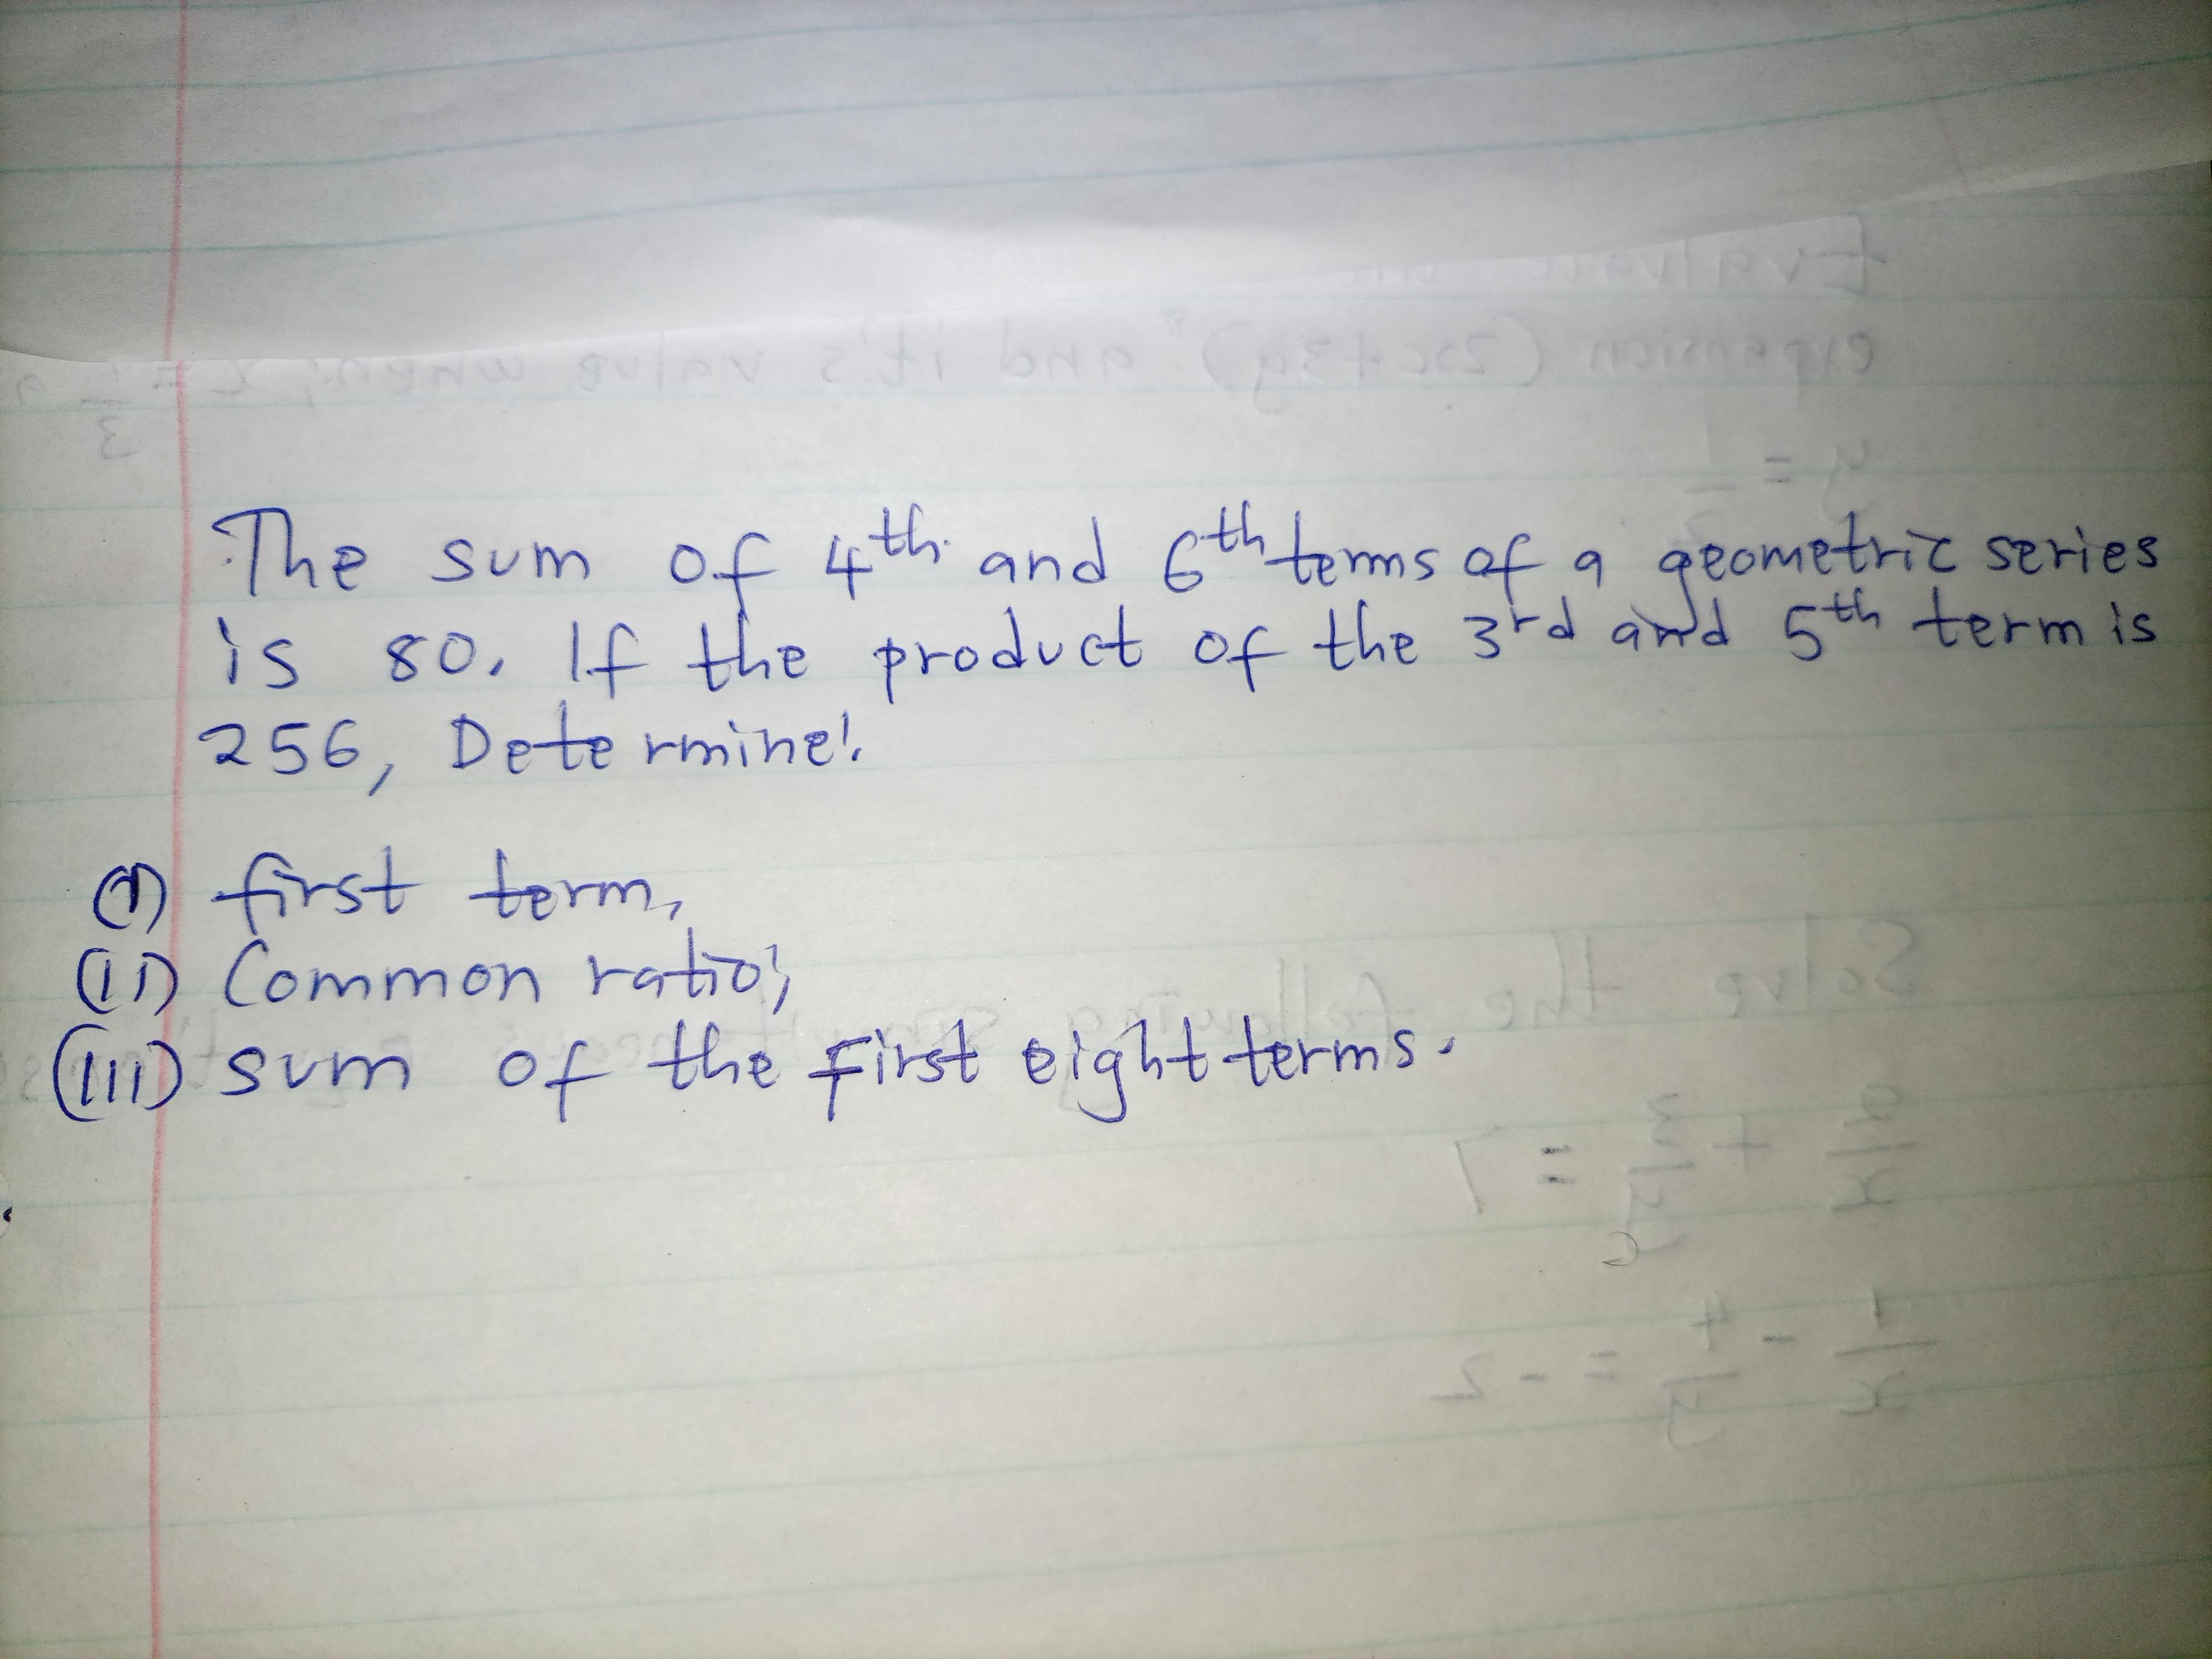 The sum of 4th and 6th terms of a geometric series
is 80. If the product of the 3rd and 5th term is
256, Determine:
(i) first term,
(ii) Common ratio;
(iii) sum of the first eight terms.